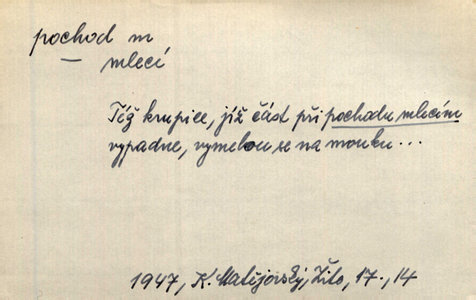 pochod m
— mlecí
Tíž krupice, jíž část při pochodu mlecím
vypadne, vymelou se na mouku...
1947, K. Matějovský, Žito, 17., 14